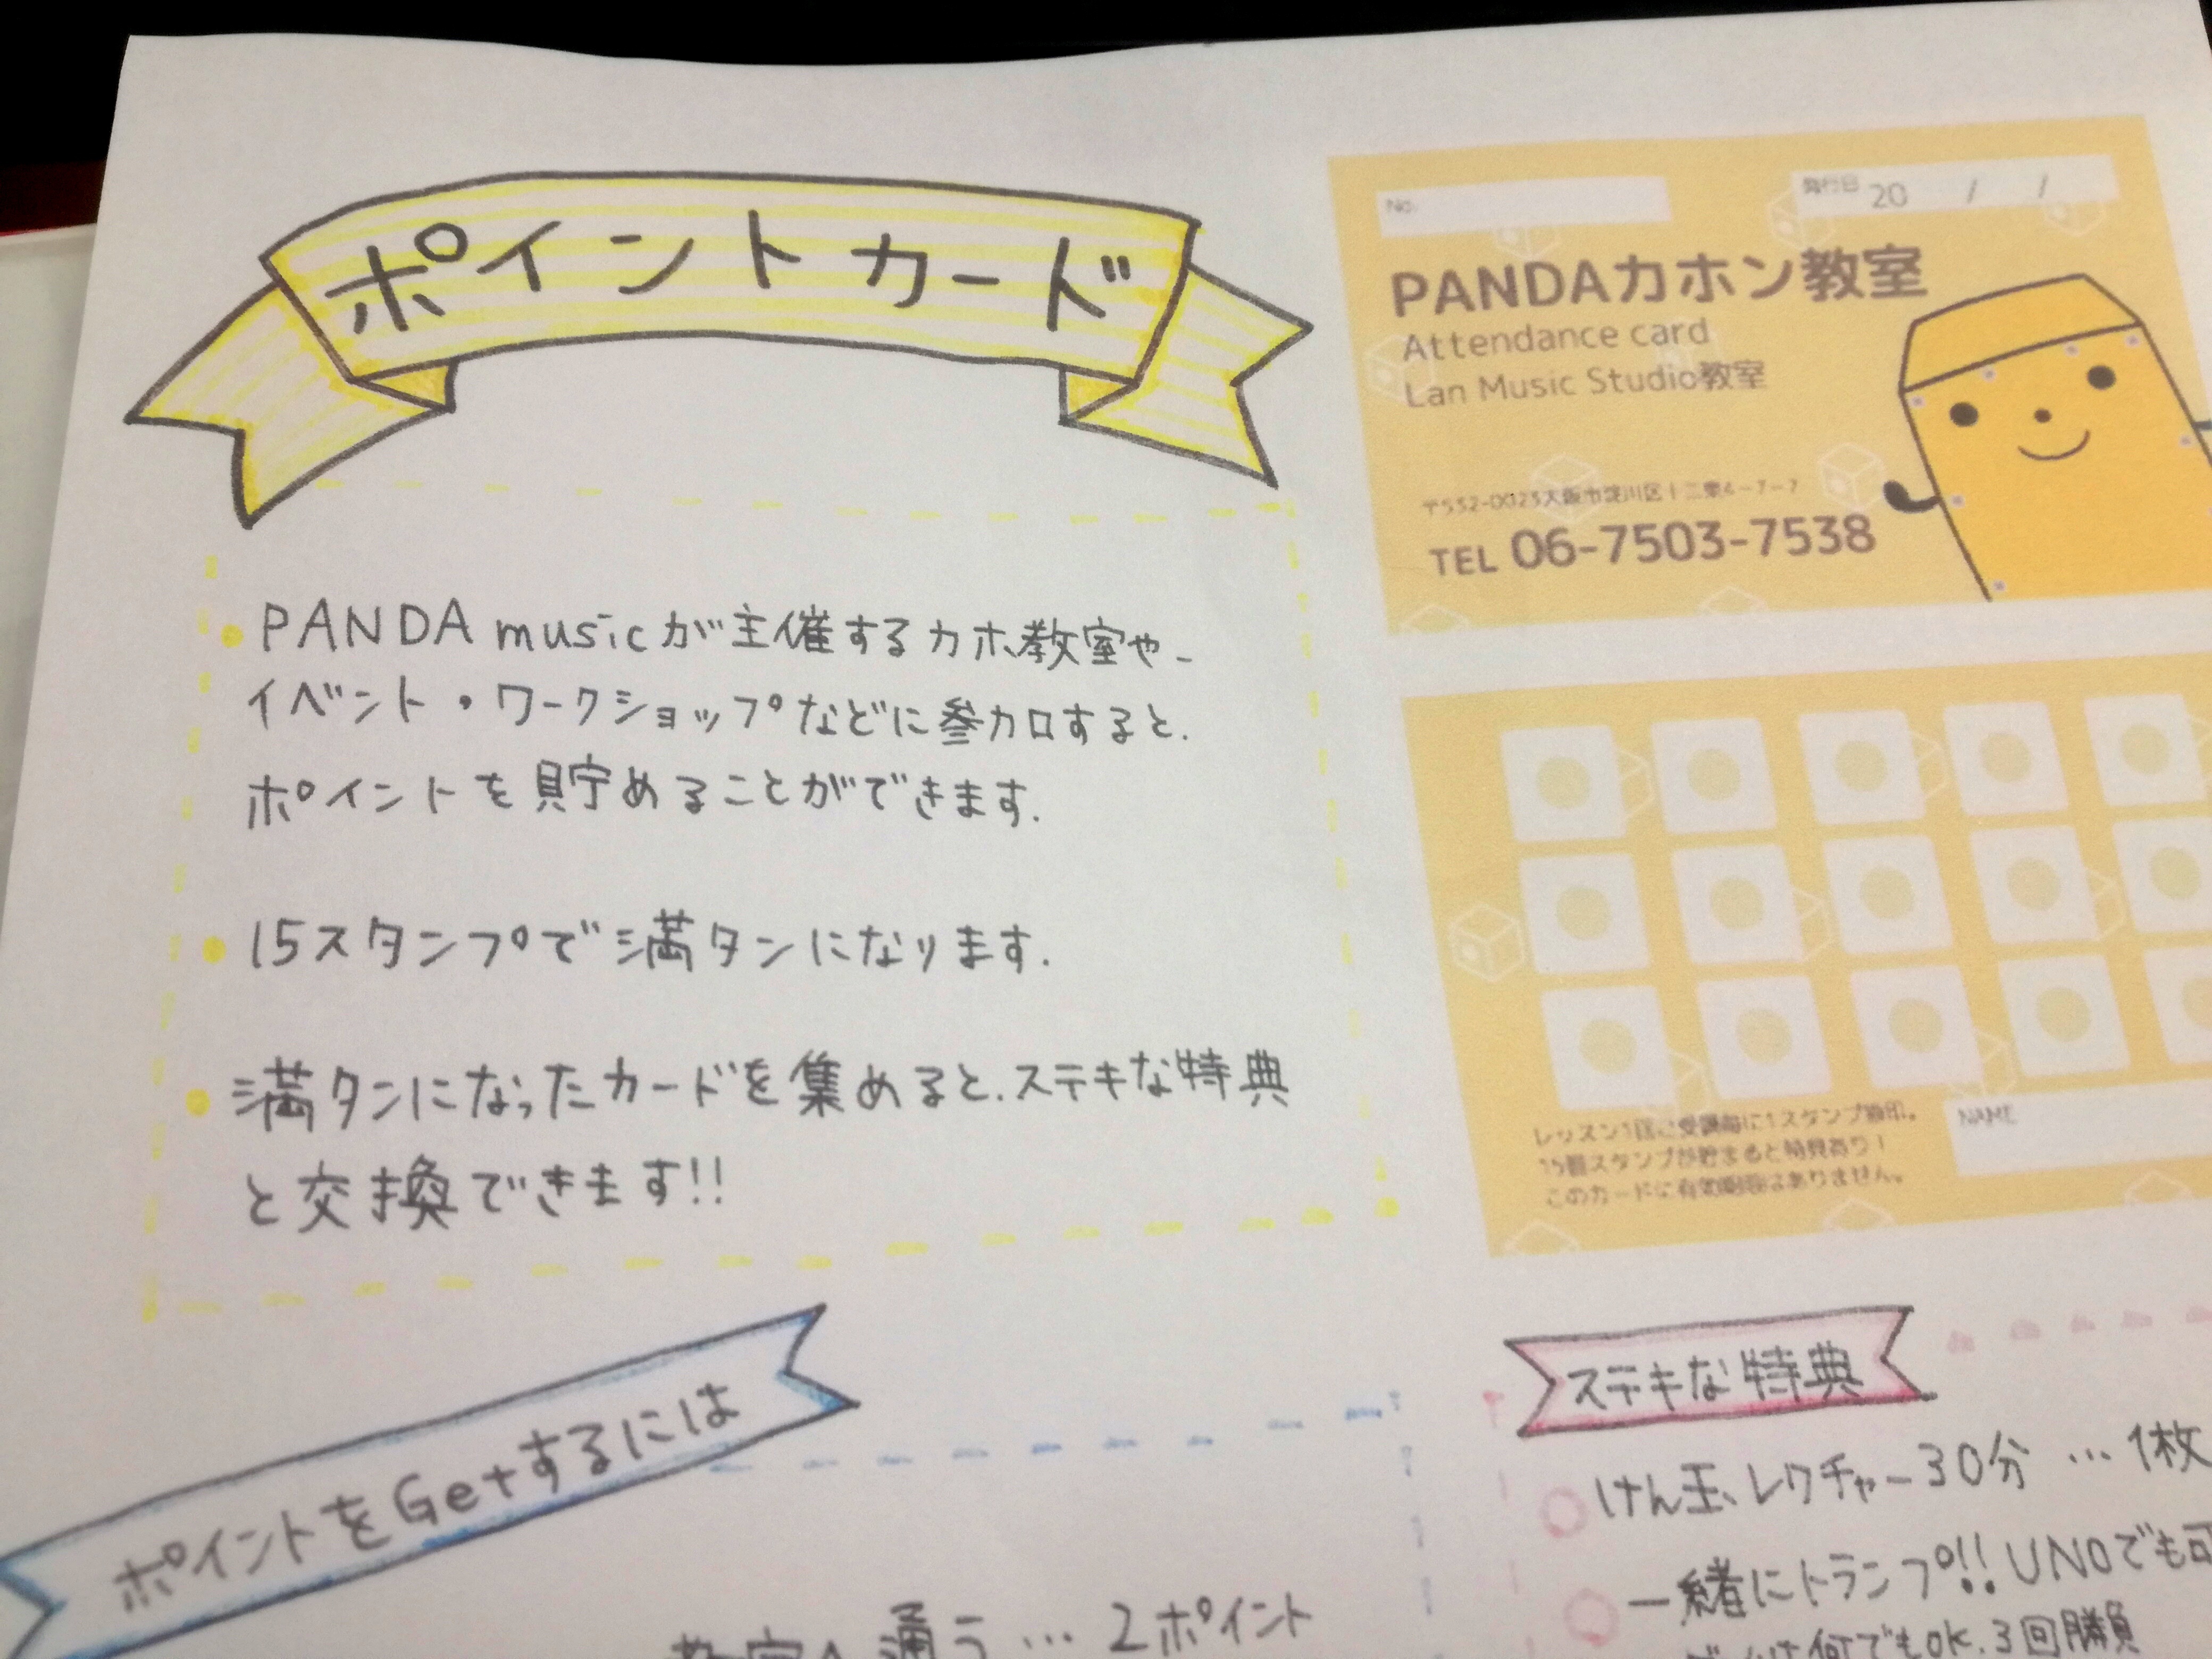 ポイントカード
・PANDA musicが主催するカホン教室や、
イベント・ワークショップなどに参加すると、
ポイントを貯めることができます.
・15スタンプで満タンになります.
・満タンになったカードを集めると、ステキな特典
と交換できます!!
No.
発行日 20 / /
PANDAカホン教室
Attendance card
Lan Music Studio教室
〒532-0023大阪市淀川区十三東4-7-7
TEL 06-7503-7538
レッスン1回ご受講毎に1スタンプ捺印。
15個スタンプが貯まると特典有り！
このカードに有効期限はありません。
NAME
ポイントをGetするには
教室へ通う…2ポイント
ステキな特典
けん玉レクチャー30分…1枚
一緒にトランプ!! UNOでも可
何でもOK. 3回勝負